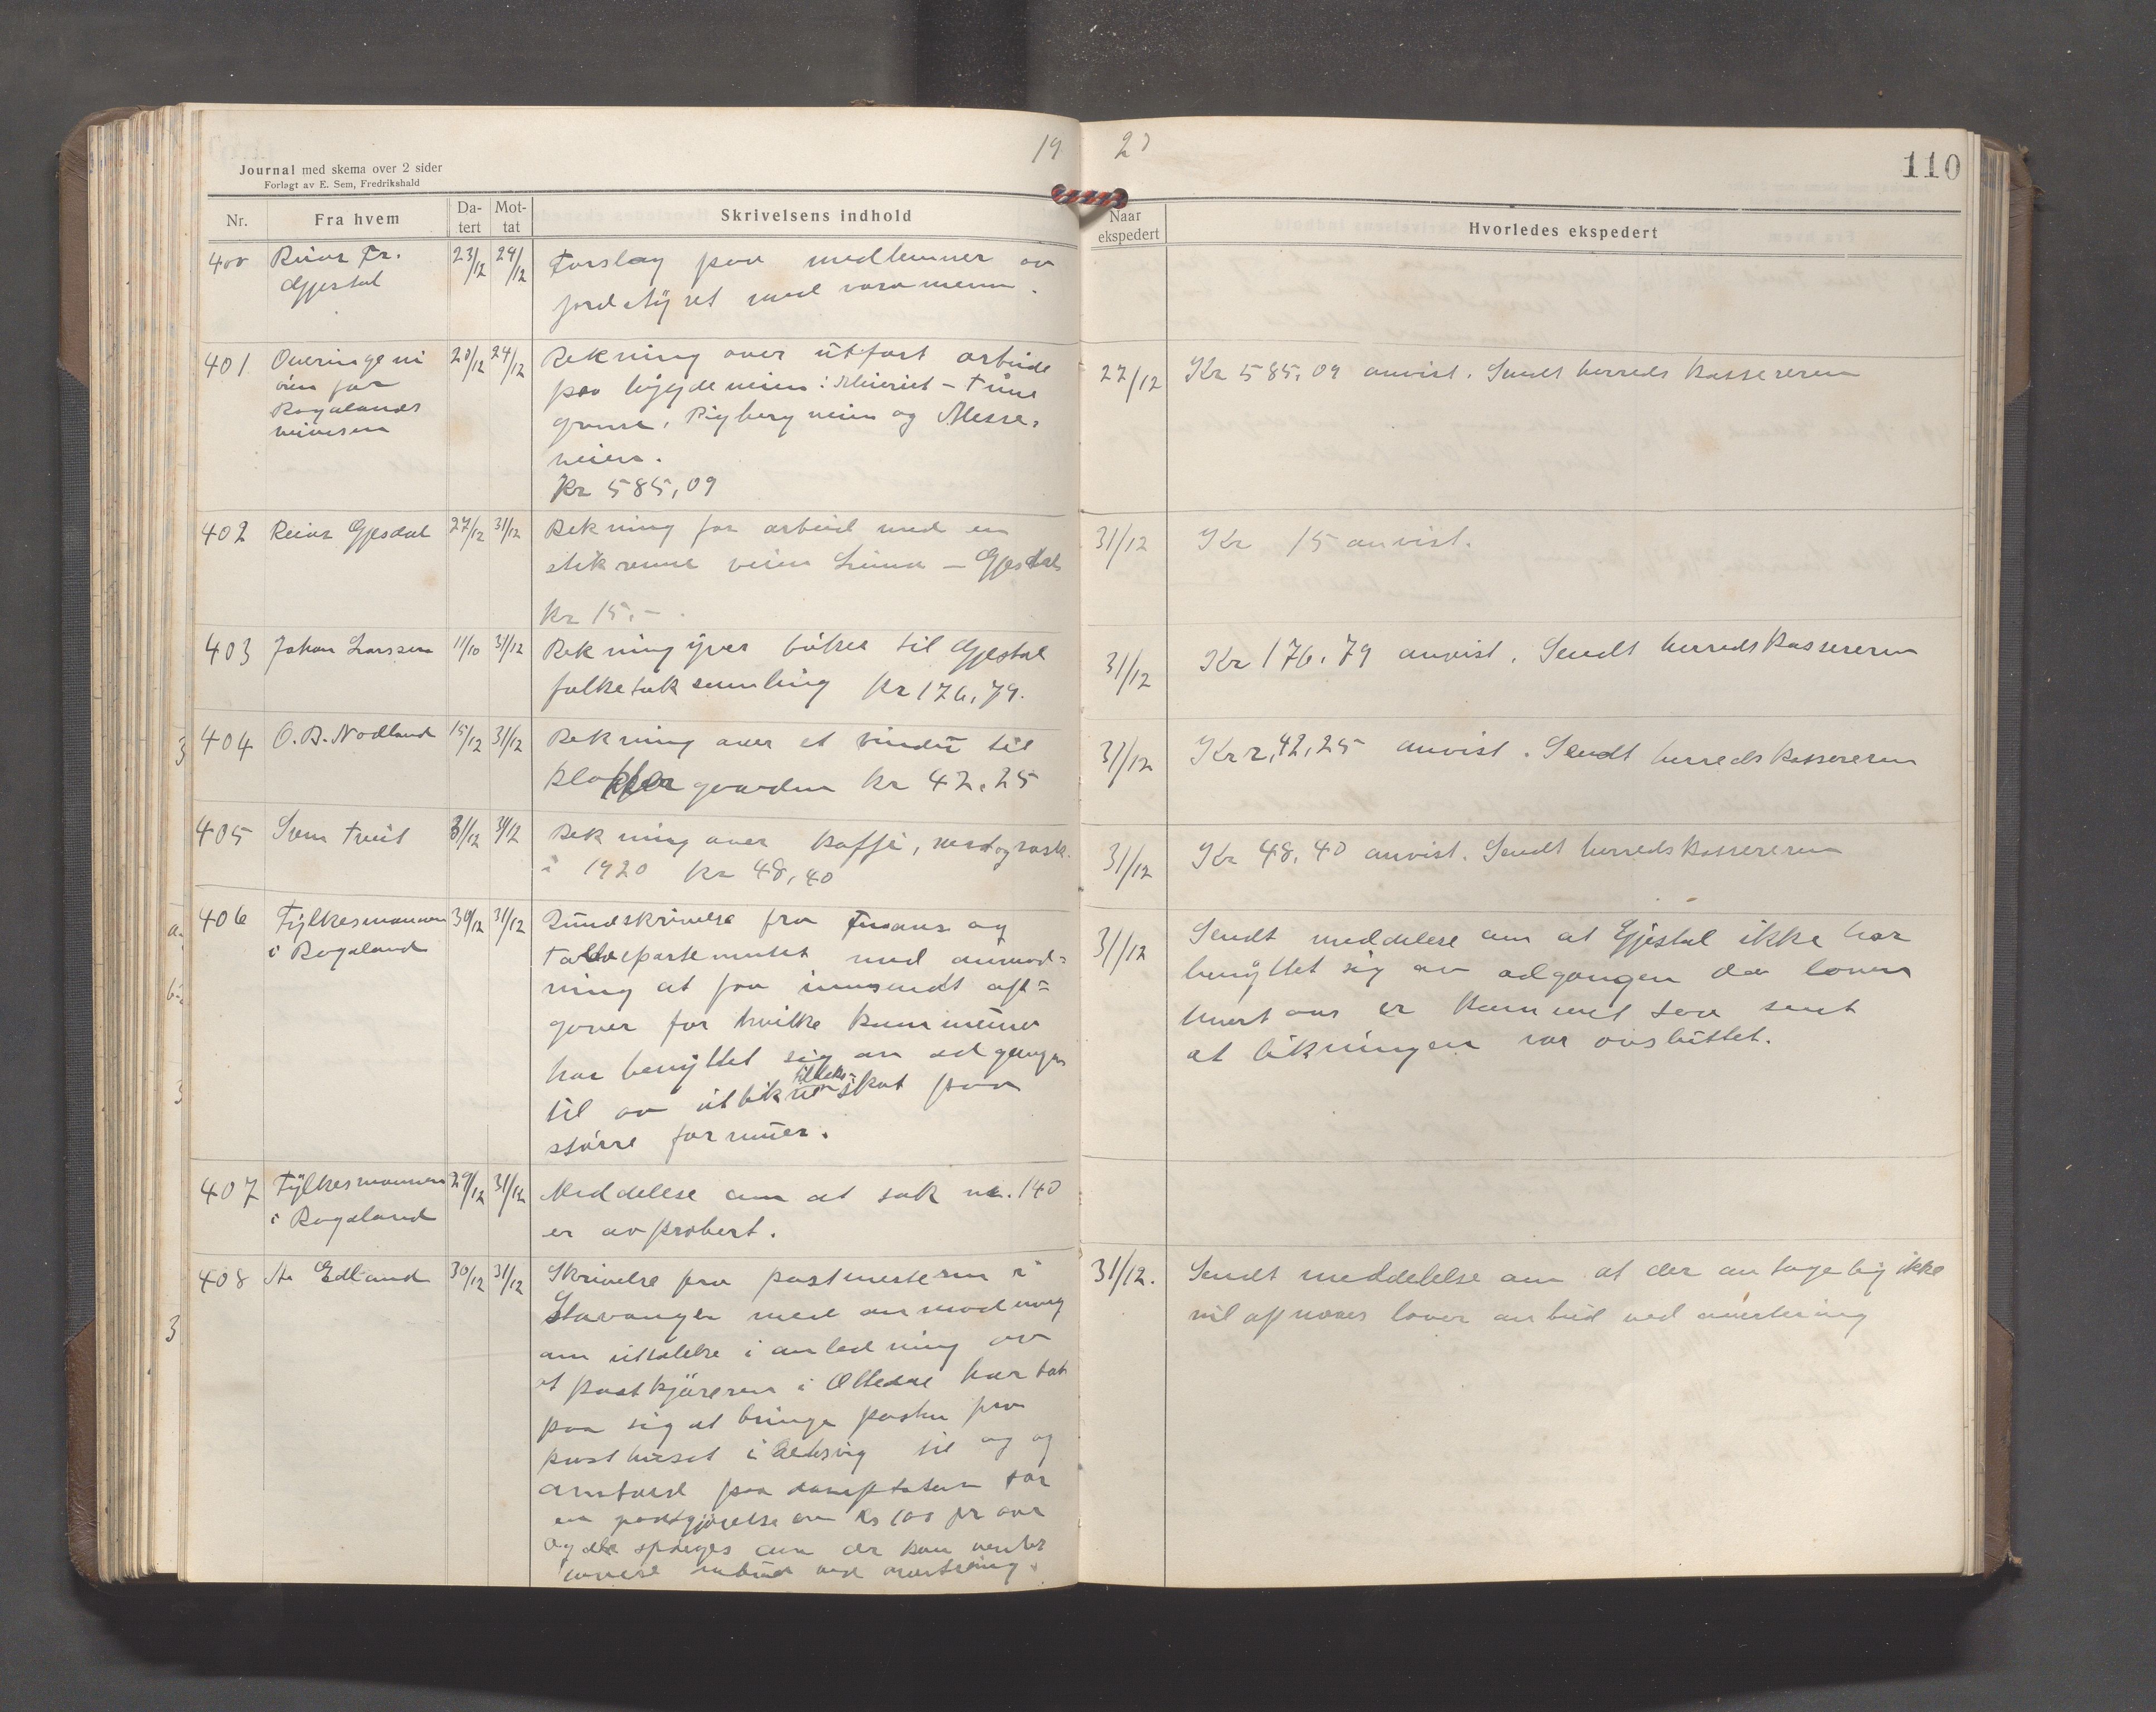 19 20
110
Journal med skema over 2 sider
Forlagt av E. Sem, Fredrikshald
Nr. Fra hvem Da-tert Mot-tat Skrivelsens indhold Naar ekspedert Hvorledes ekspedert
400 Reiar Fr. 23/12 24/12 Forslag paa medlemmer av
Gjestal jordstyret med varamenn.
401 Overingeni 20/12 24/12 Rekning over utført arbeide
øren for paa bygdeveien: Meieriet - Time
Rogalands grense, Rigberg veien og Messe,
veivesen veien.
Kr 585,09
27/12 Kr 585,09 anvist. Sendt herredskassereren
402 Reiar Gjesdal 27/12 31/12 Rekning for arbeid med en
stikrenne veien Lima - Gjesdal
Kr 15,-
31/12 Kr 15 anvist.
403 Johan Larssen 11/10 31/12 Rekning yver bøker til Gjestal
folkeboksamling Kr 176,79.
31/12 Kr 176,79 anvist. Sendt herredskassereren
404 O. B. Nodland 15/12 31/12 Rekning over et vindu til
klokkergaarden kr 42,25
31/12 Kr 42,25 anvist. Sendt herredskassereren
405 Sven Tveit 31/12 31/12 Rekning over kaffi, ved og vask
i 1920 kr 48,40
31/12 Kr 48,40 anvist. Sendt herredskassereren
406 Fylkesmannen 30/12 31/12 Rundskrivelse fra Finans og
i Rogaland Tolddepartementet med anmod-
ning at faa innsendt opt-
gaver for hvilke kommuner
har benyttet sig av adgangen
til av utlikne tilleks-skat paa
større formuer.
31/12 Sendt meddelese om at Gjestal ikke har
benyttet sig av adgangen da loven
herom er kommet saa sent
at likningen var avsluttet.
407 Fylkesmannen 29/12 31/12 Meddelese om at sak nr. 140
i Rogaland er approbert.
408 Edland 30/12 31/12 Skrivelse fra postmesteren i
Stavanger med anmodning
om uttalelse i anledning av
at postkjøreren i Oltedal har tat
paa sig at bringe posten fra
posthuset i til og og
ombord paa dampbaten for
en godtgjørelse av Kr 100 pr aar
og det spørges om der kan ventes
lavere anbud ved avertering.
31/12. Sendt meddelelse om at der antagelig ikke
vil opnaaes laver anbud ved avertering